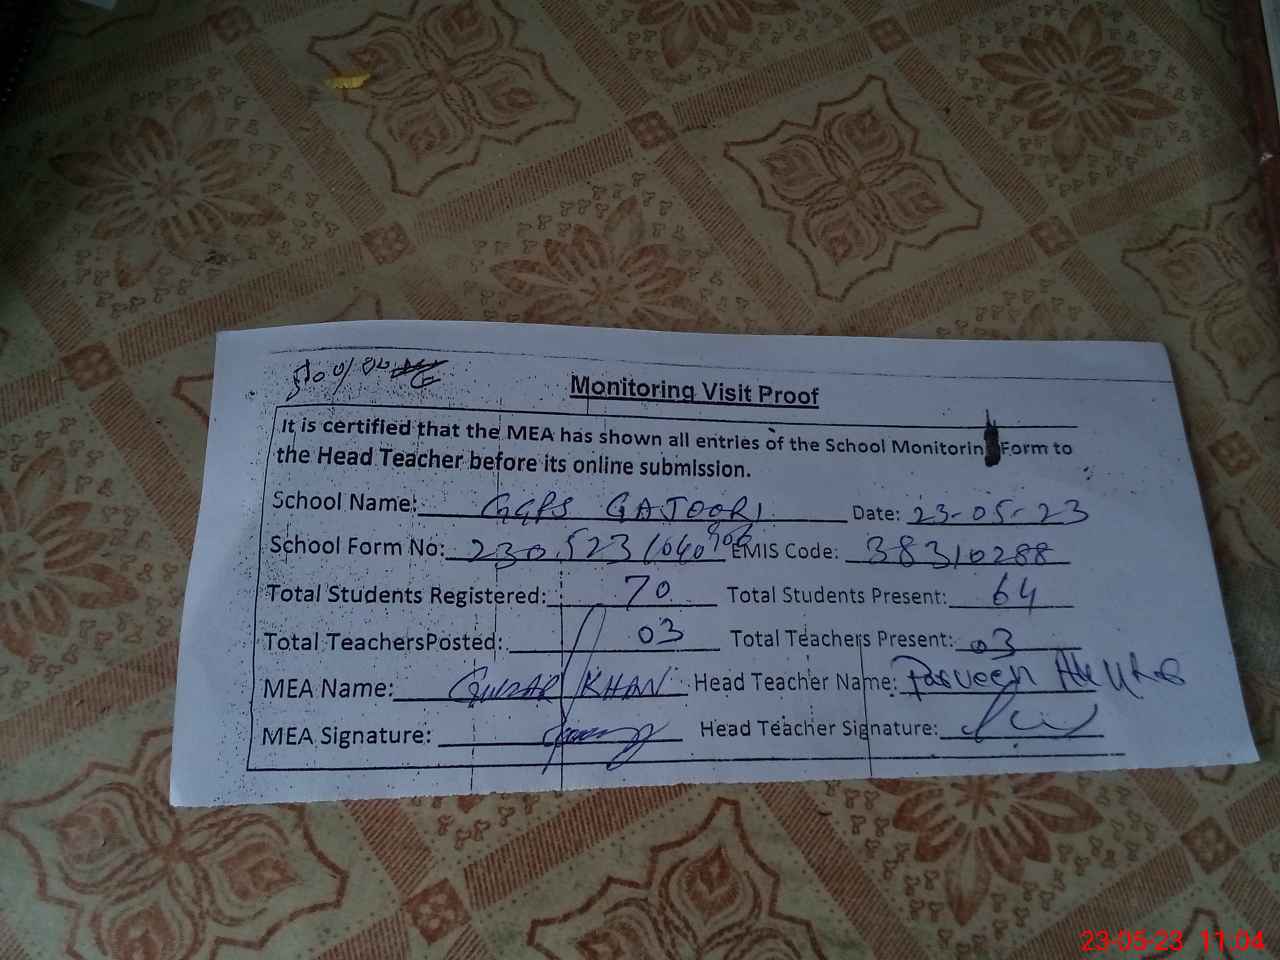 Monitoring Visit Proof
It is certified that the MEA has shown all entries of the School Monitoring Form to
the Head Teacher before its online submission.
School Name: GGPS GAJOORI Date: 23-05-23
School Form No: 230523104090 EMIS Code: 38310288
Total Students Registered: 70 Total Students Present: 64
Total TeachersPosted: 03 Total Teachers Present: 03
MEA Name: GULZAR KHAN Head Teacher Name: Parveen
MEA Signature: Head Teacher Signature:
23-05-23 11:04